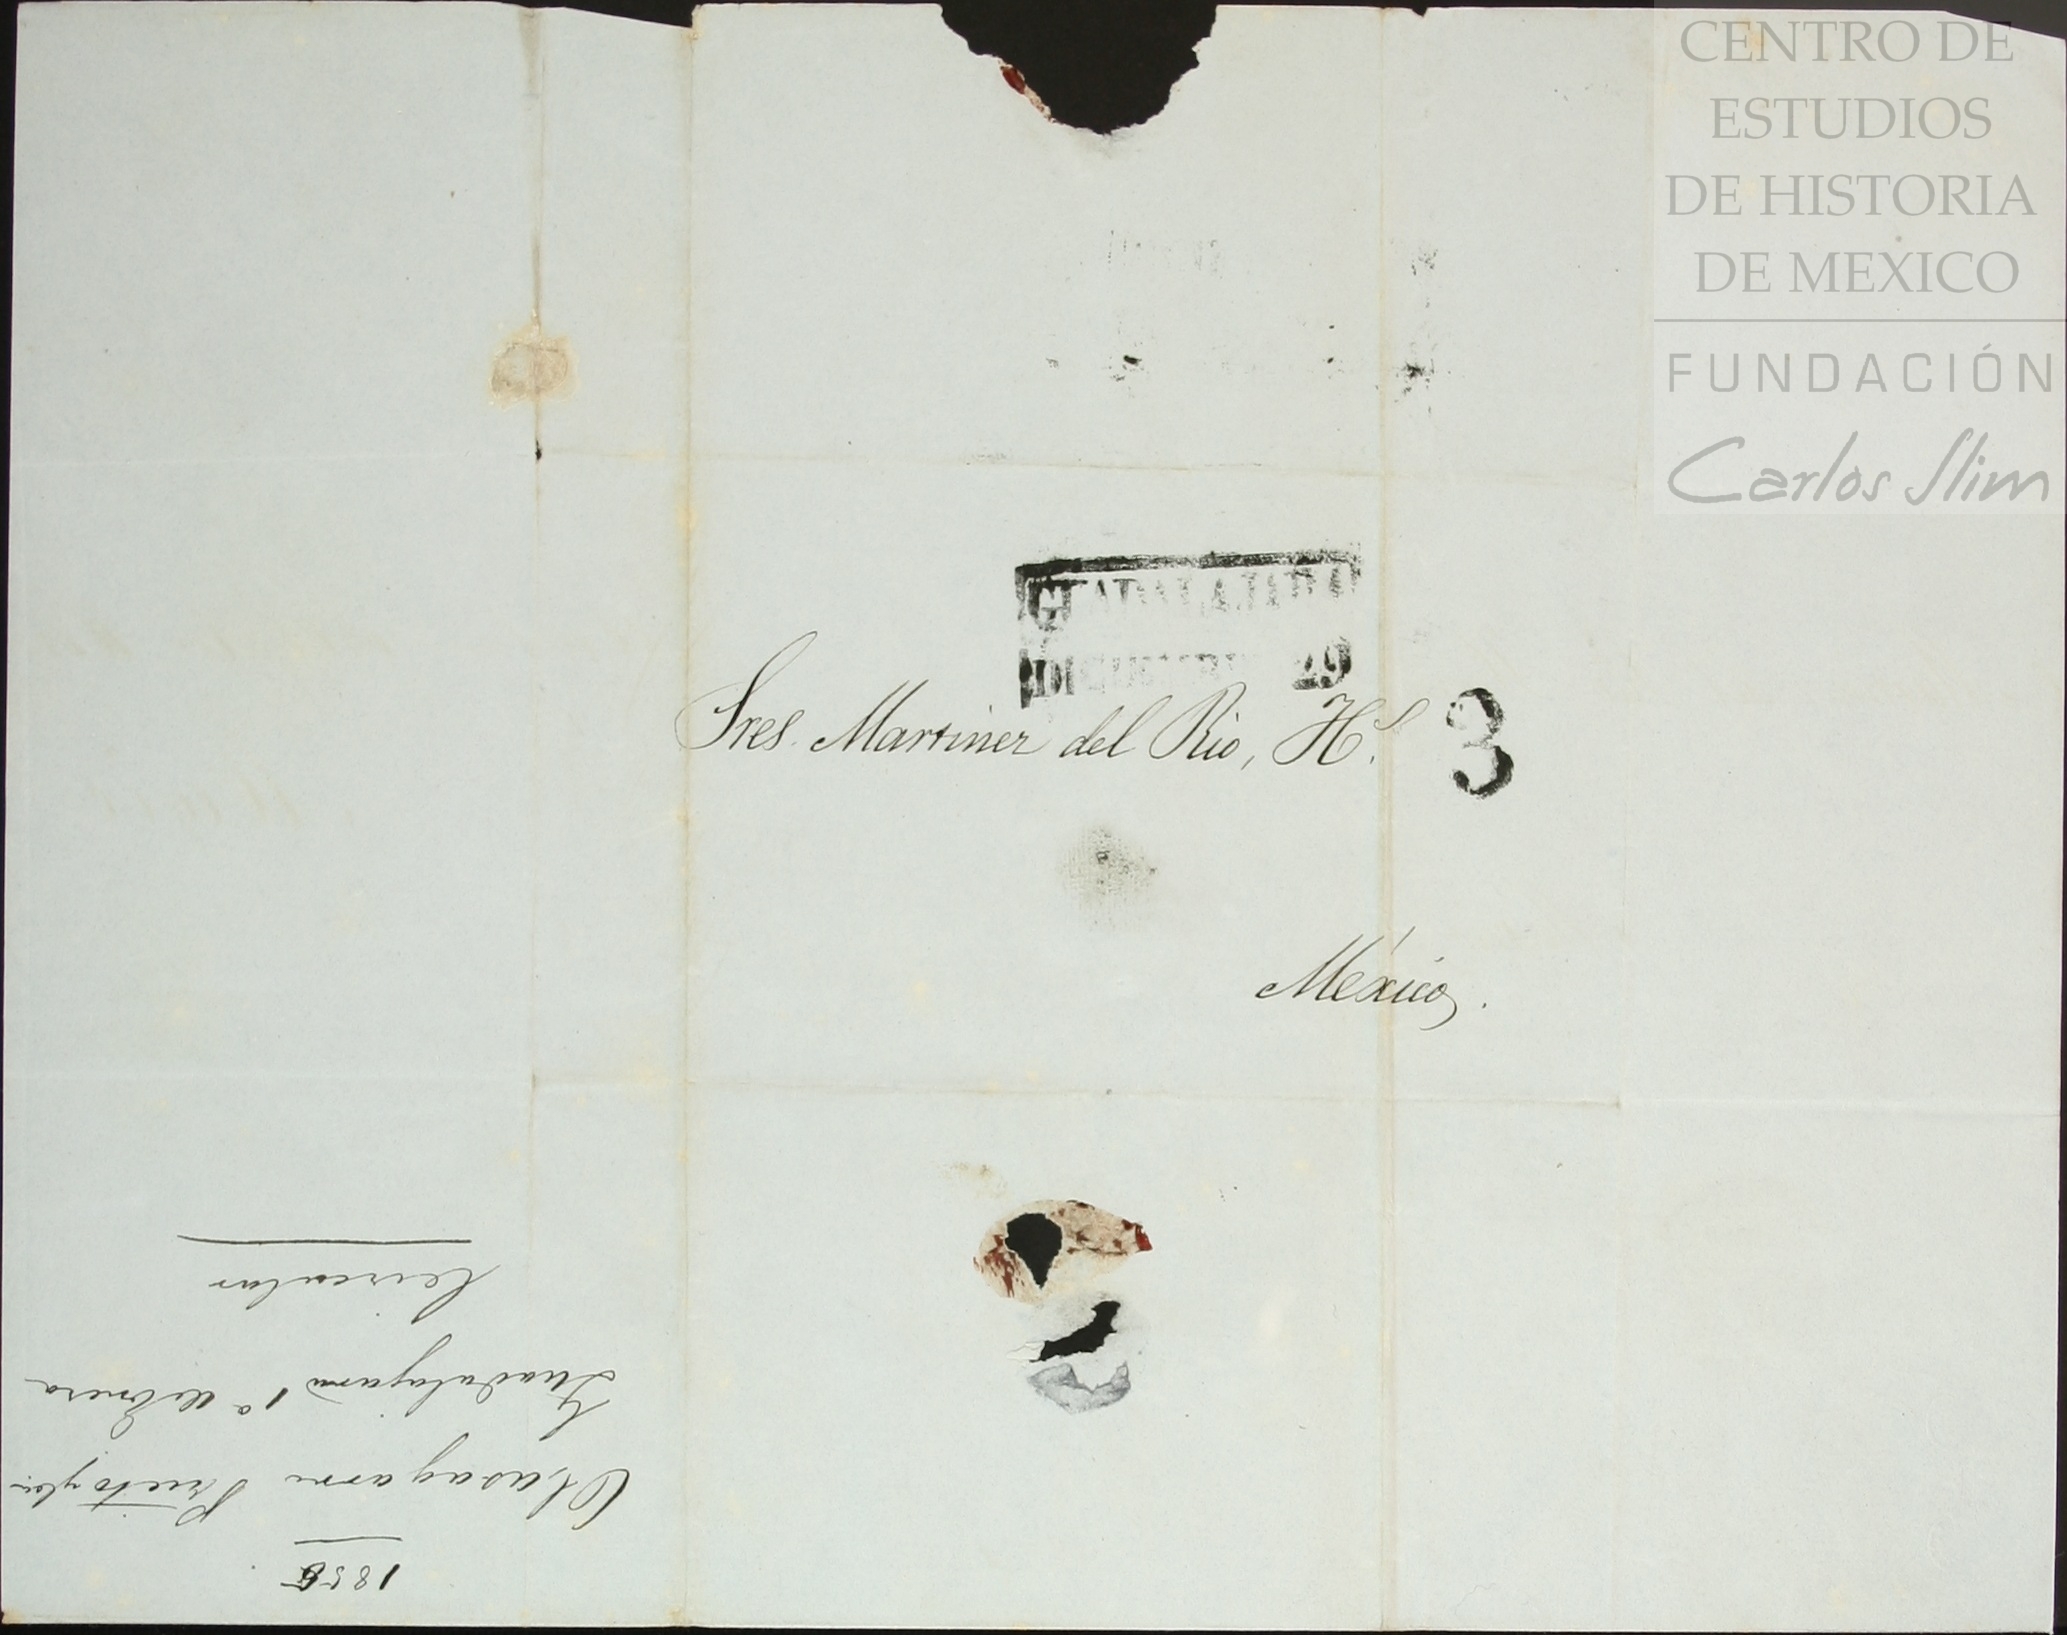 CENTRO DE
ESTUDIOS
DE HISTORIA
DE MEXICO
FUNDACIÓN
Carlos Slim
GUADALAJARA
DICIEMBRE 29
Sres. Martinez del Rio, H.s
3
México.
1856
Olasagarre Prieto y Ca
Guadalajara 1o de Enero
Circular